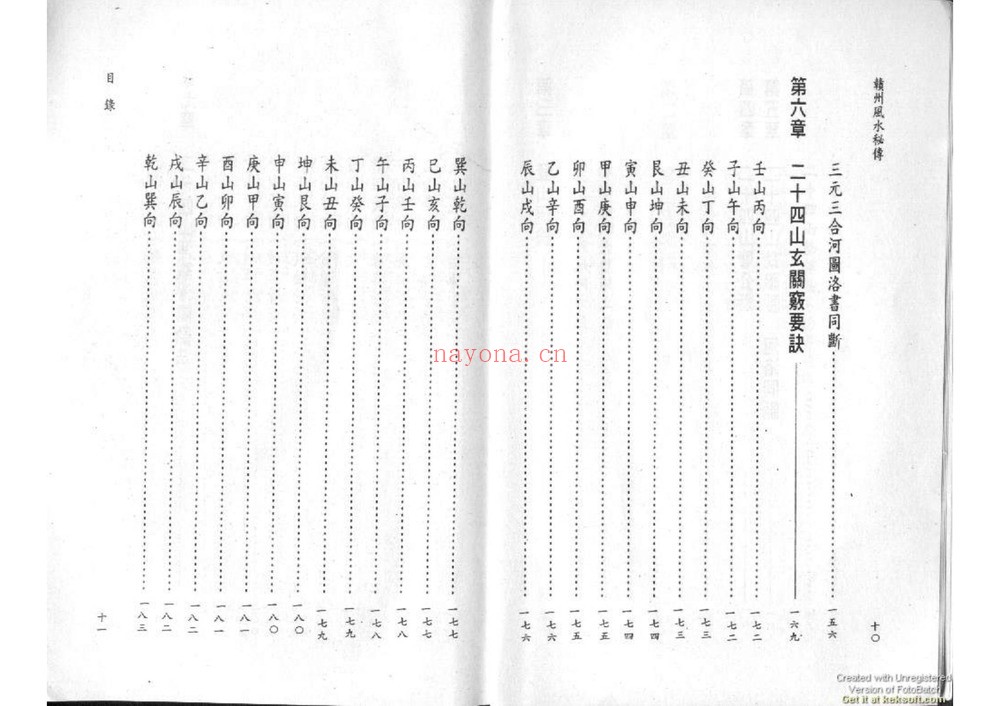 贛州風水秘傳
三元三合河圖洛書同斷 一五六
第六章 二十四山玄關竅要訣 一六九
壬山丙向 一七二
子山午向 一七二
癸山丁向 一七三
丑山未向 一七三
艮山坤向 一七四
寅山申向 一七四
甲山庚向 一七五
卯山酉向 一七五
乙山辛向 一七六
辰山戌向 一七六
十〇
巽山乾向 一七七
巳山亥向 一七七
丙山壬向 一七八
午山子向 一七八
丁山癸向 一七九
未山丑向 一七九
坤山艮向 一八〇
申山寅向 一八〇
庚山甲向 一八一
酉山卯向 一八一
辛山乙向 一八二
戌山辰向 一八二
乾山巽向 一八三
目錄
十一
nayona.cn
Created with Unregistered
Version of FotoBatch
Get it at keksoft.com